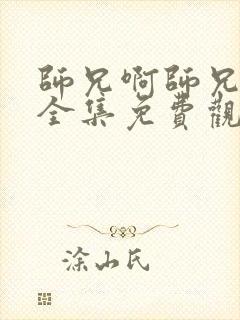 師兄啊師兄
全集免費觀
涂山氏